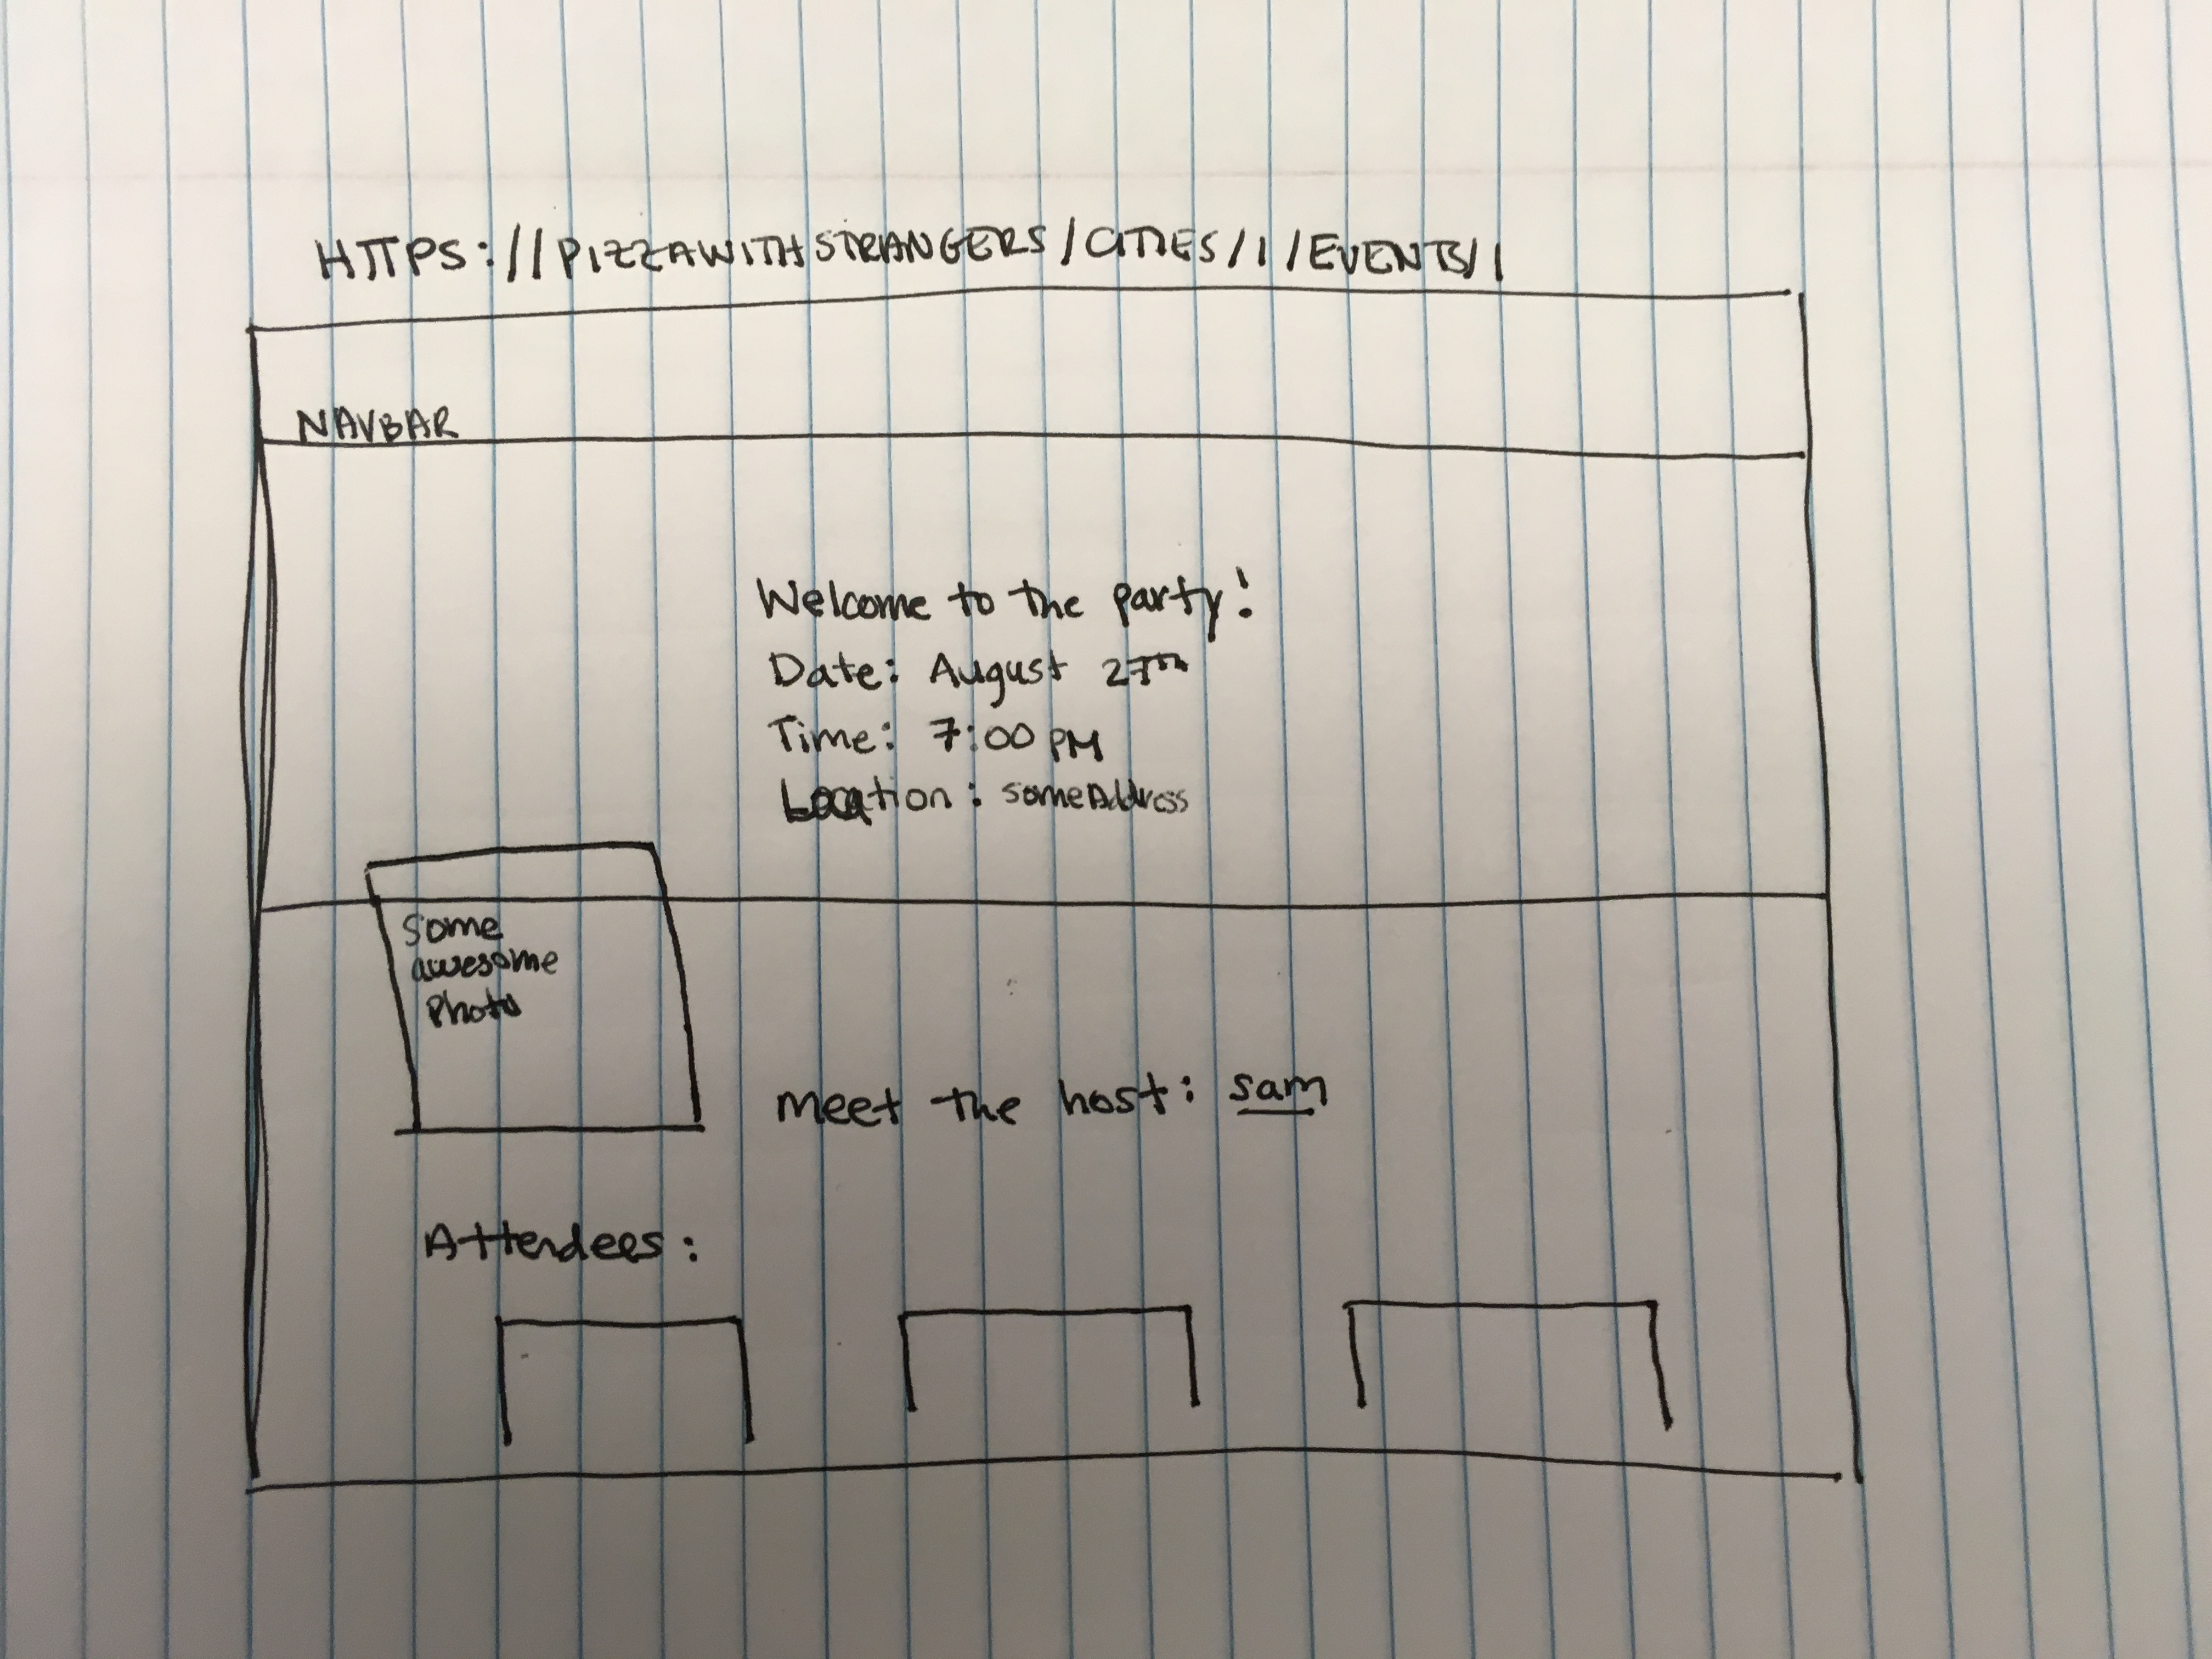 HTTPS://PIZZAWITHSTRANGERS/CITIES/1/EVENTS/1
NAVBAR
Welcome to the party!
Date: August 27th
Time: 7:00 PM
Location: some Address
some
awesome
photo
meet the host: sam
Attendees: